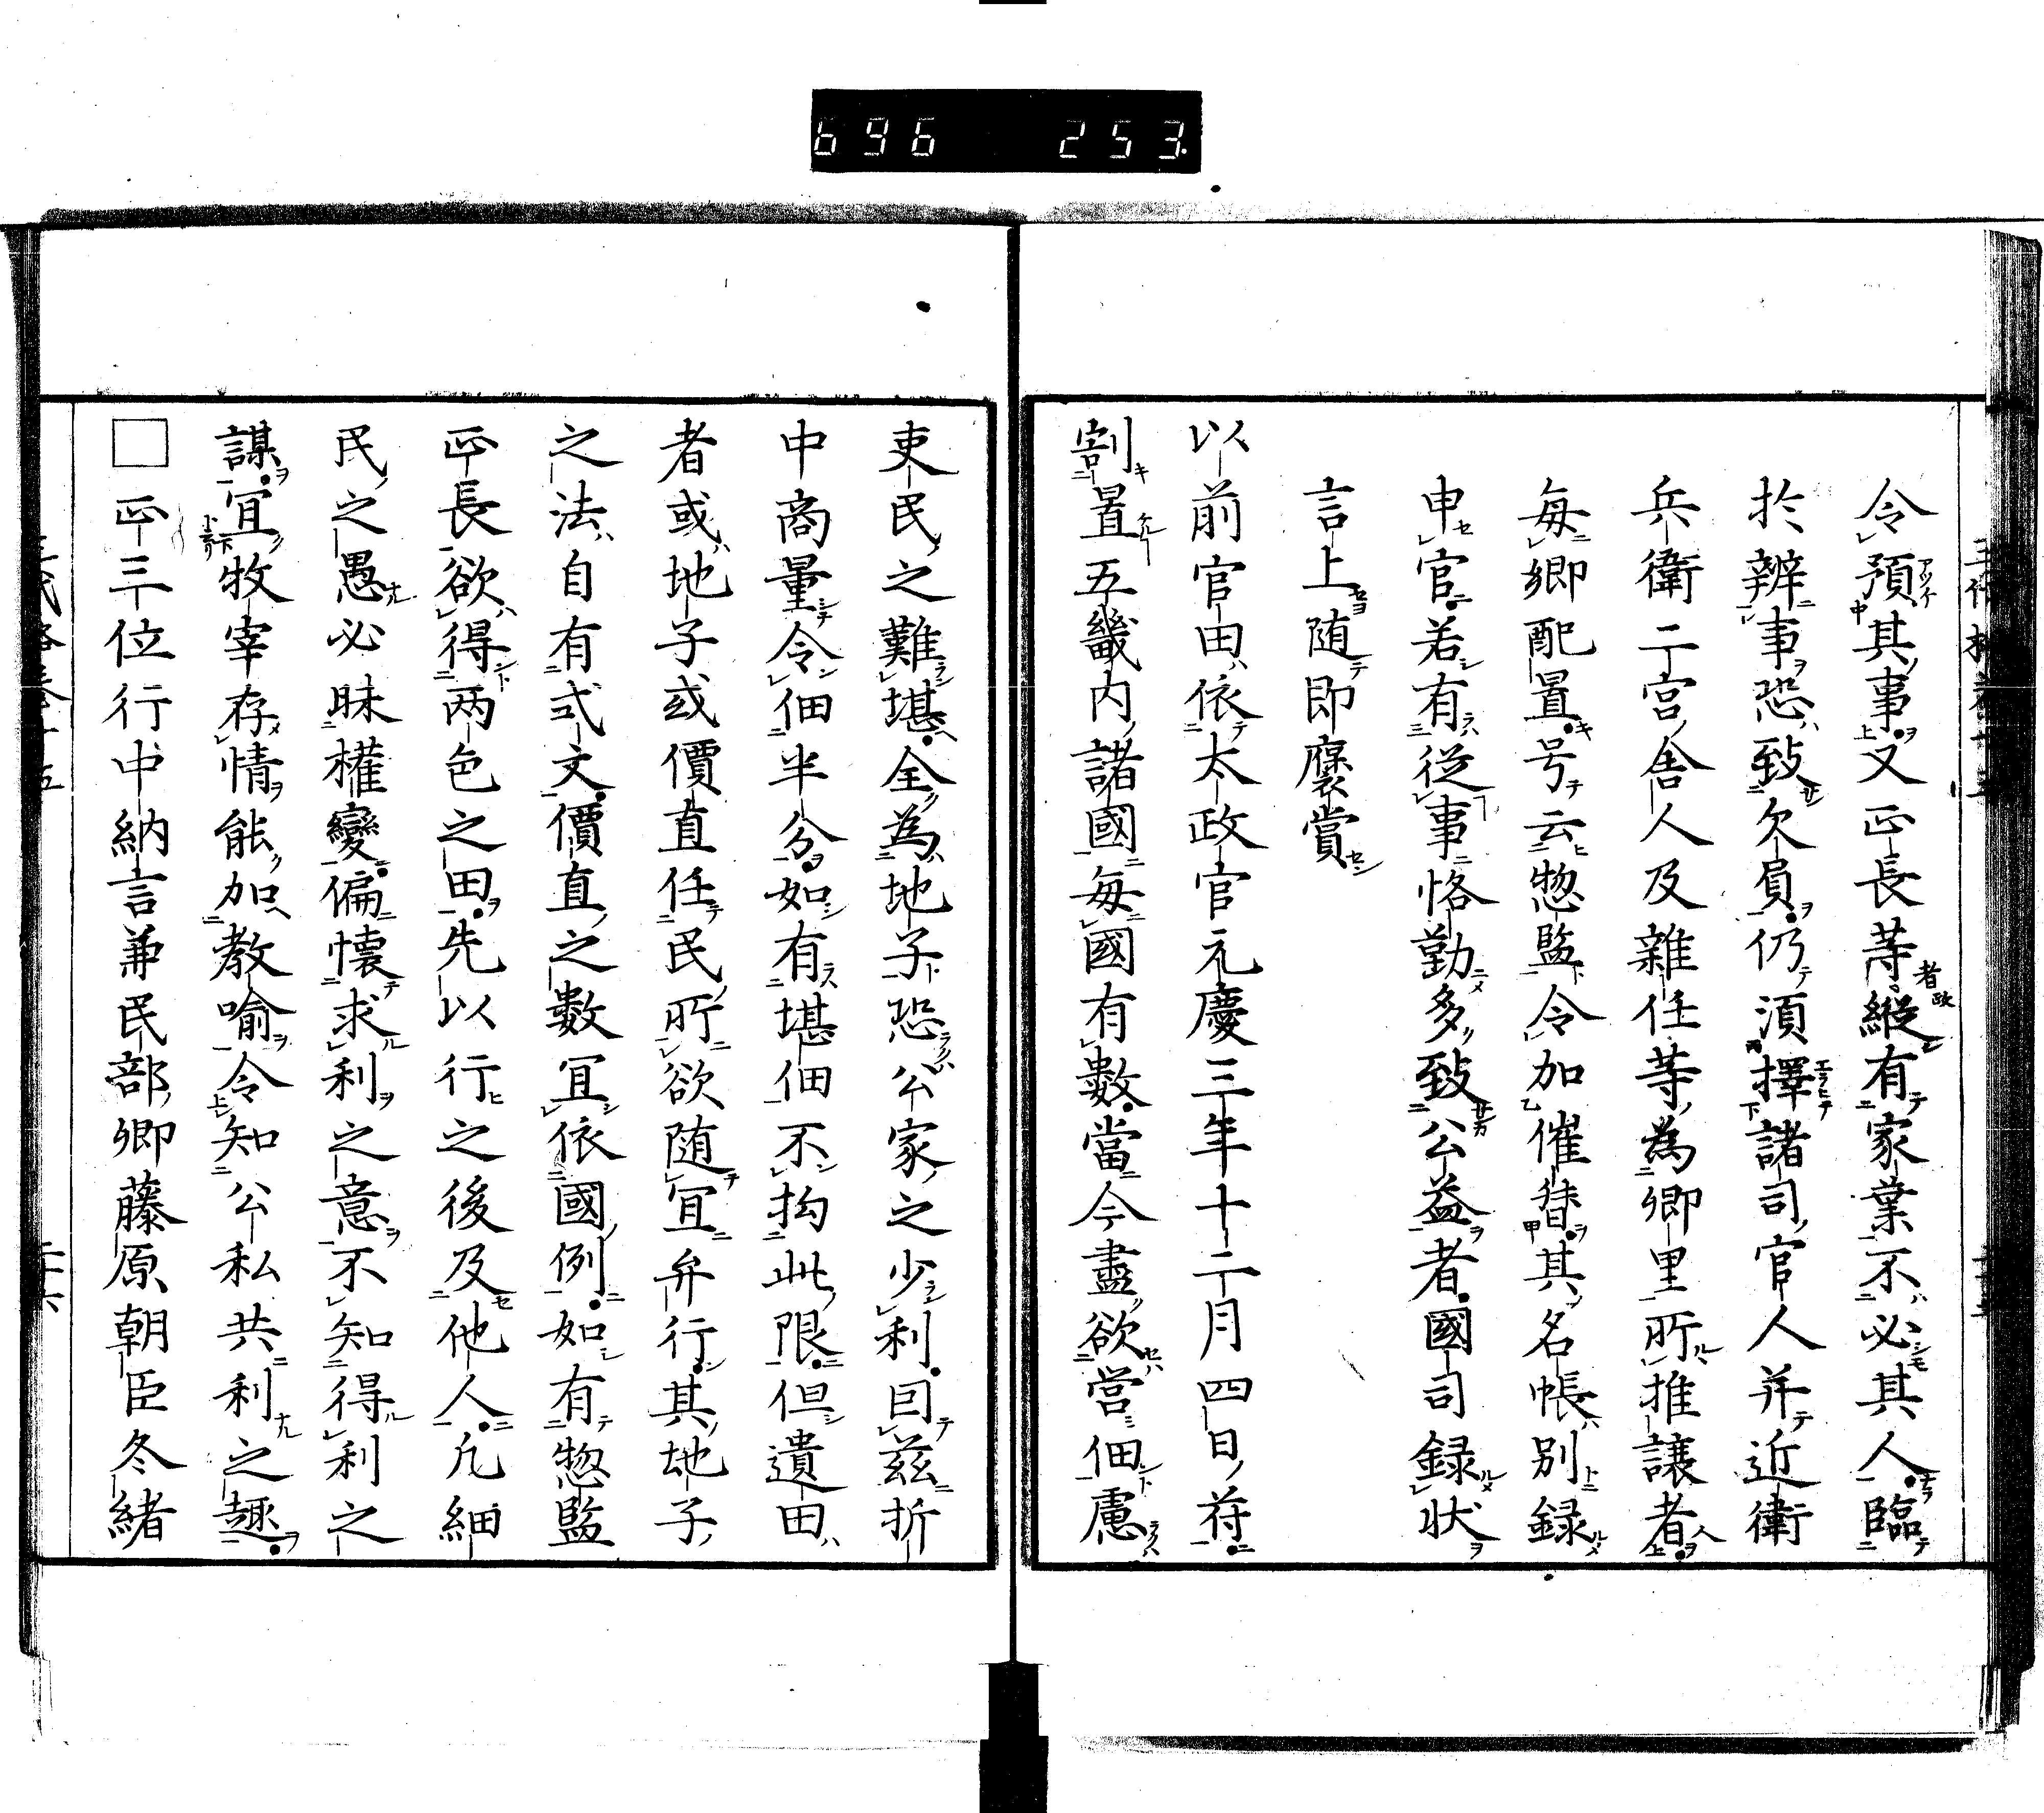 696 253
令預其事又正長等縱有家業不必其人臨
於辨事恐致欠負仍須擇諸司官人并近衛
兵衛二宮舎人及雜任等為郷里所推譲者
毎郷配置号云惣監令加催督其名帳別録
申官若有従事恪勤多致公益者國司録状
言上随即褒賞
以前官田依太政官元慶三年十二月四日符
割置五畿内諸國毎國有數當今盡欲営佃慮
吏民之難堪全為地子恐公家之少利囙茲折
中商量令佃半分如有堪佃不拘此限但遺田
者或地子或價直任民所欲随冝弁行其地子
之法自有式文價直之數冝依國例如有惣監
正長欲得两色之田先以行之後及他人凡細
民之愚必昧權變偏懐求利之意不知得利之
謀冝牧宰存情能加教喻令知公私共利之趣
□正三位行中納言兼民部卿藤原朝臣冬緒